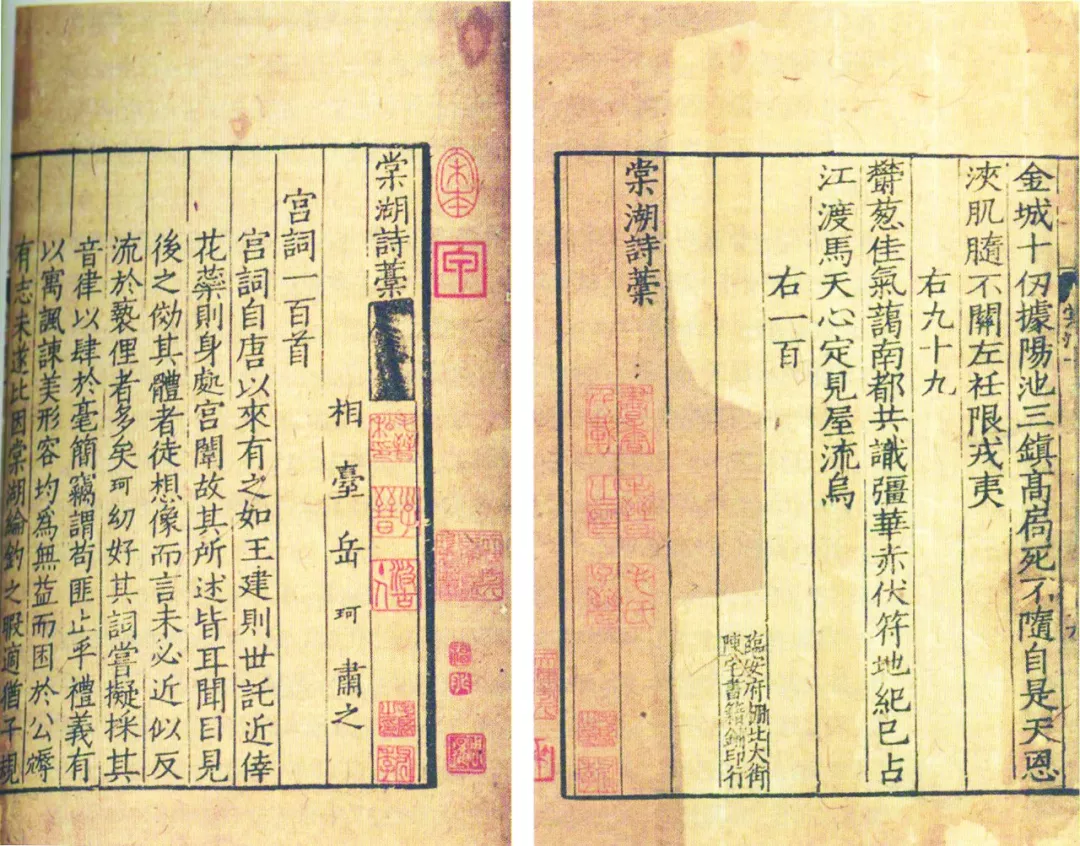 宋本
甲
棠湖詩藁
相臺岳珂肅之
宫詞一百首
宫詞自唐以來有之如王建則世託近倖
花蘂則身處宫闈故其所述皆耳聞目見
後之傚其體者徒想像而言未必近似反
流於褻俚者多矣珂幼好其詞嘗擬採其
音律以肆於毫簡竊謂苟匪止乎禮義有
以寓諷諫美形容均爲無益而困於公
有志未遂比因棠湖綸釣之暇適猶子規
金城十仞據陽池三鎮髙扄死不隨自是天恩
浹肌髓不關左衽限戎夷
右九十九
鬱葱佳氣藹南都共識彊華赤伏符地紀巳占
江渡馬天心定見屋流烏
右一百
臨安府棚北大街
陳宅書籍鋪印行
棠湖詩藁